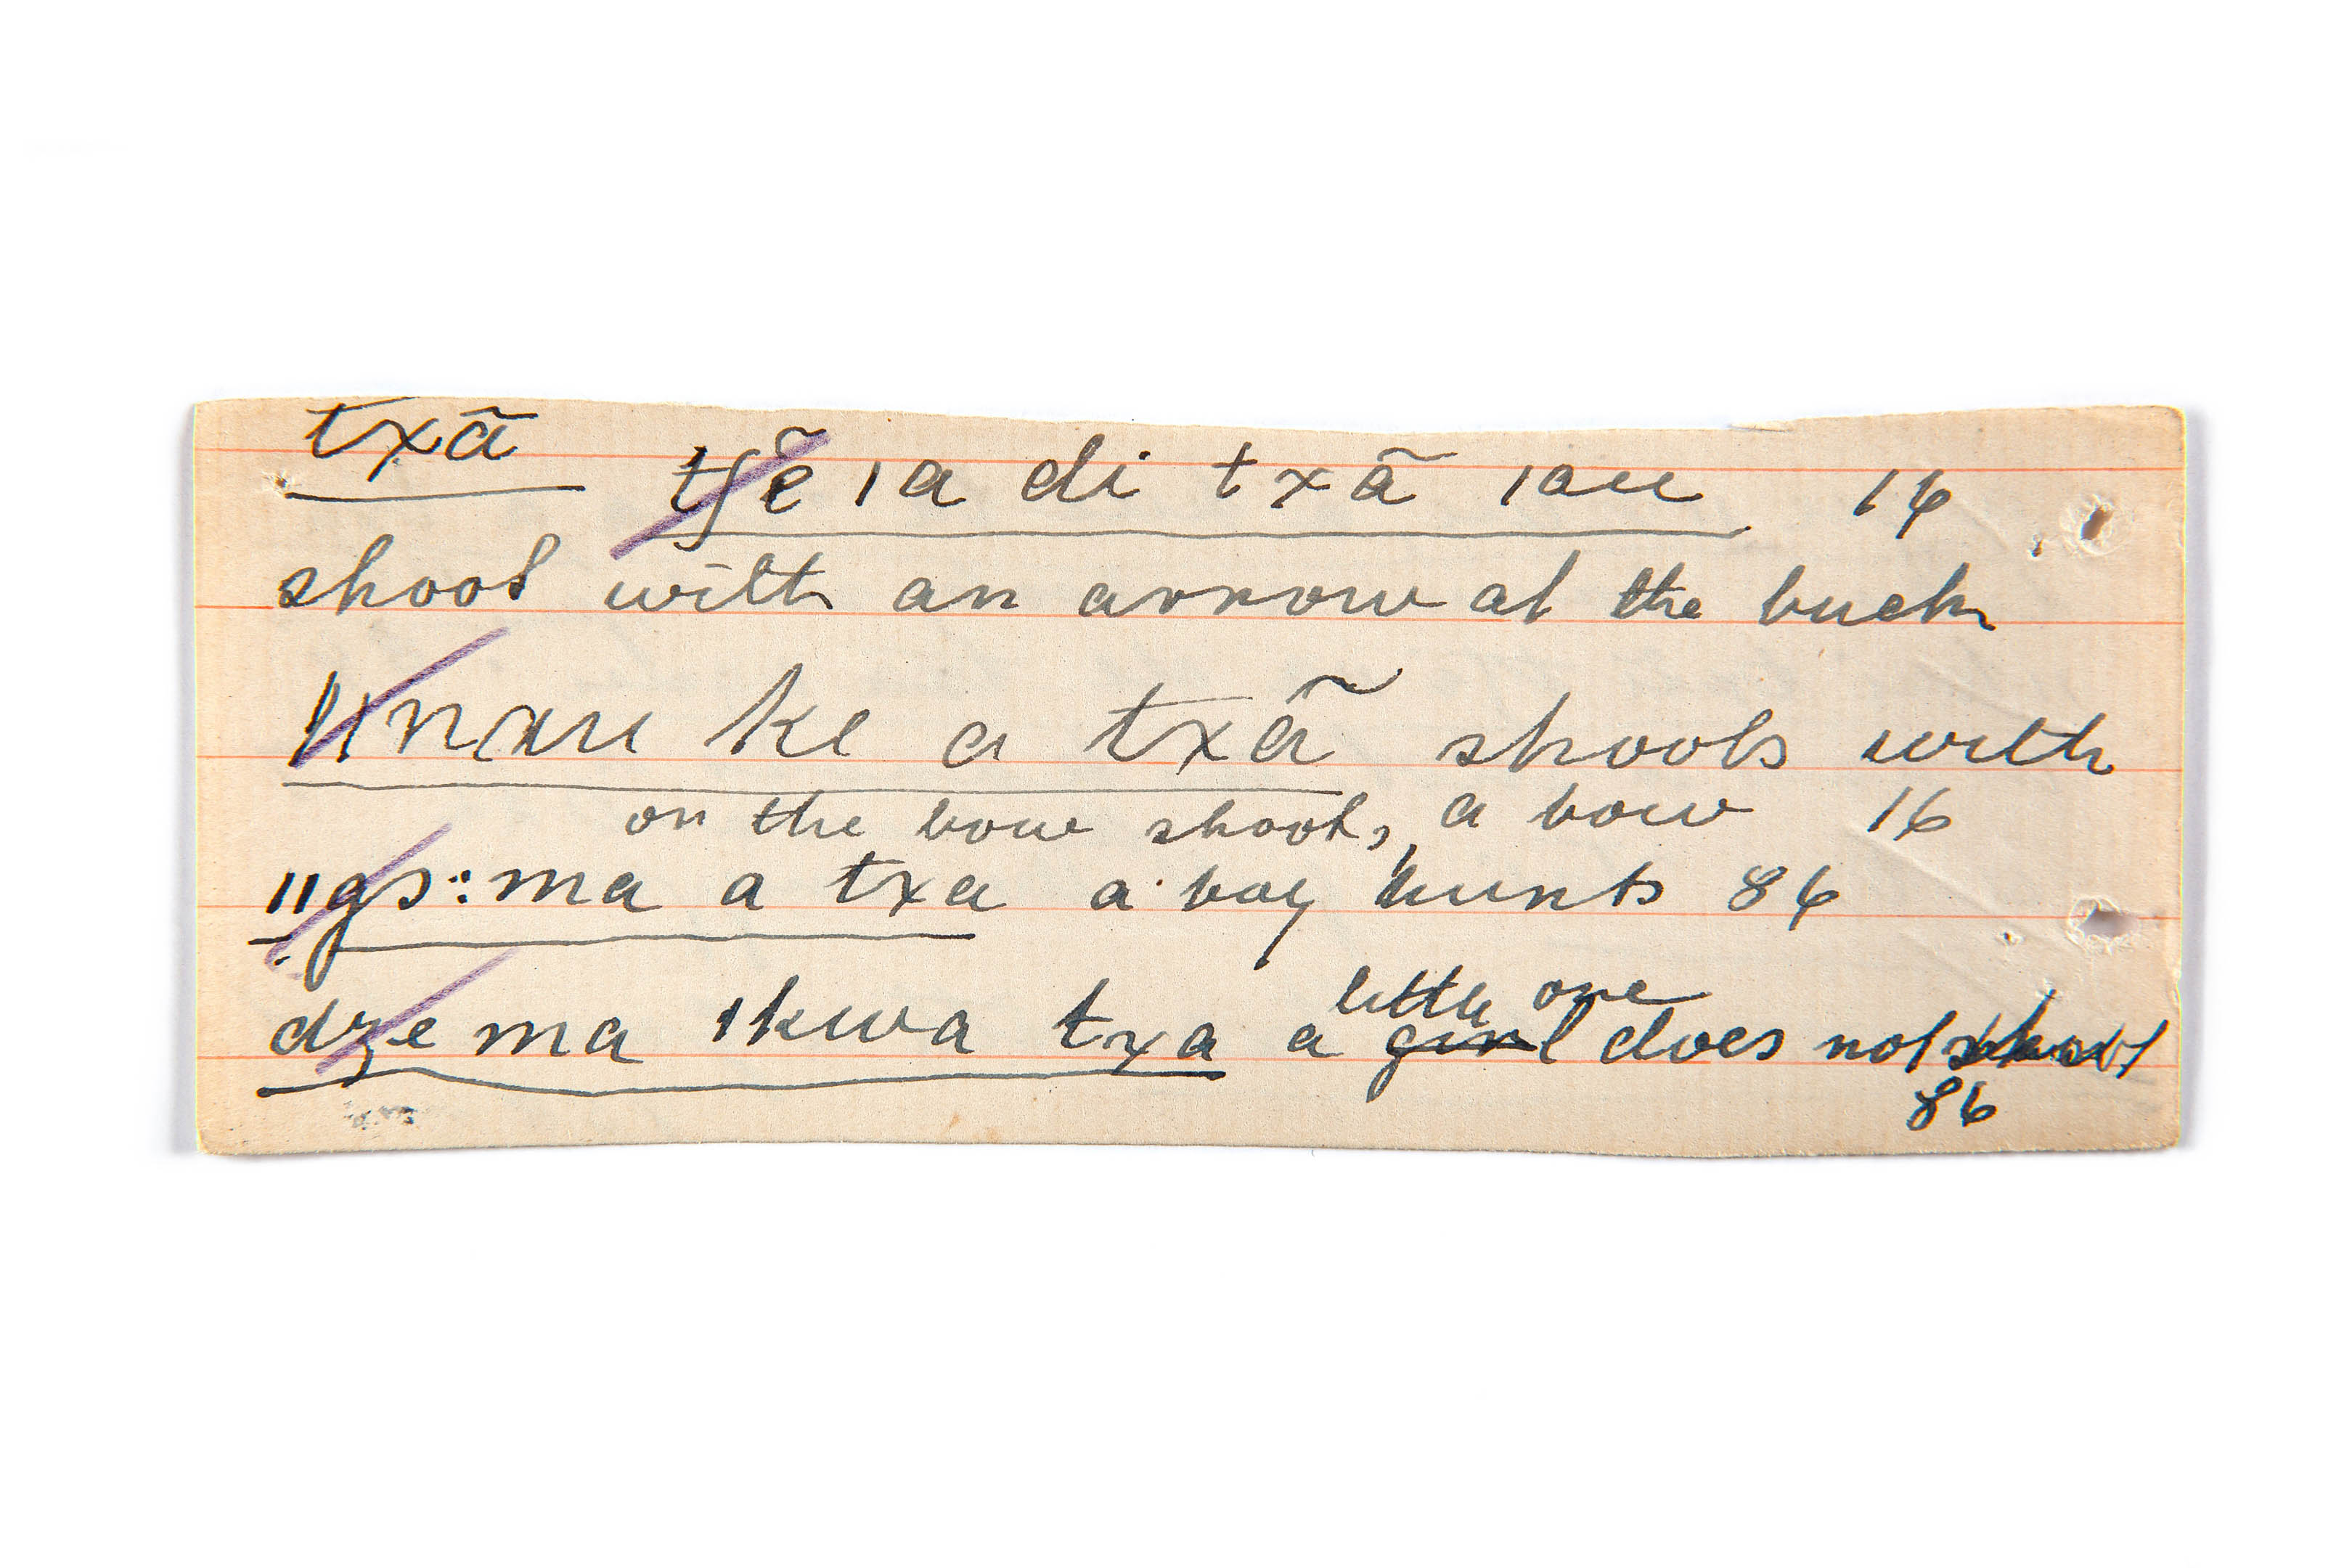 txã tʃẽ ǀa di txã ǀau 16
shoot with an arrow at the buck
ǁnau ke a txã shoots with
on the bow shoot, a bow 16
ǁgɔ:ma a txa a boy hunts 86
little one
dʒe ma ǀkwa txa a girl does not shoot
86